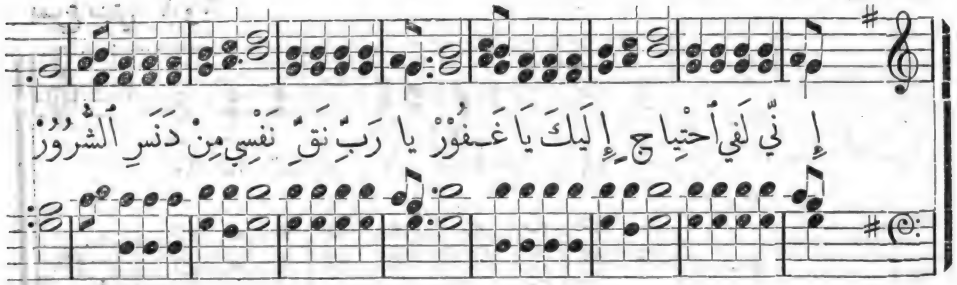 إِ نِّي لَفي ٱحْتِيا جٍ إِ لَيكَ يَا غَـفُوْرْ يا رَبِّ نَقِّ نَفْسِي مِنْ دَنَسِ ٱلشُّرُورْ